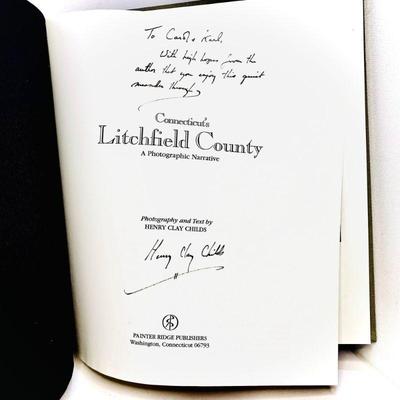 To Carol & Karl,
With high hopes from the
author that you enjoy this quiet
meander through
Connecticut's
Litchfield County
A Photographic Narrative
Photography and Text by
HENRY CLAY CHILDS
Henry Clay Childs
PAINTER RIDGE PUBLISHERS
Washington, Connecticut 06793